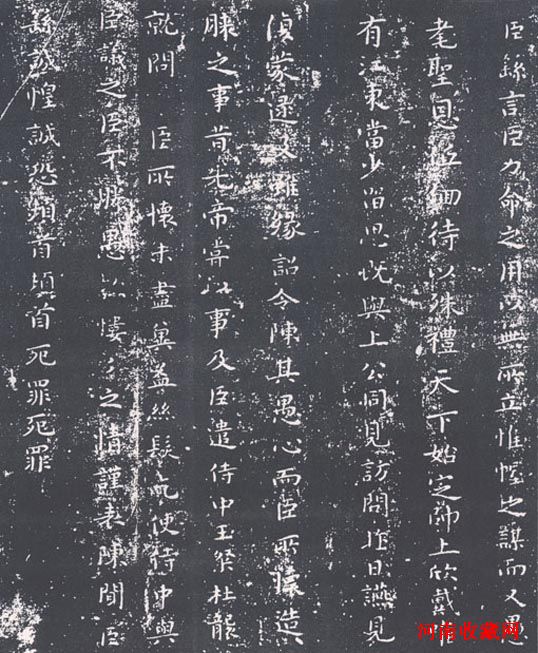 臣繇言臣力命之用以無所立惟幄之謀而又愚
耄聖恩低佪待以殊禮天下始定帥上欣戴唯
有江東當少留思既與上公同見訪問昨日讌見
復蒙逮及雖緣詔令陳其愚心而臣所懷造
膝之事昔先帝嘗以事及臣遣侍中王粲杜襲
就問 臣所懷未盡冀益絲髮乞使侍中與
臣議之臣不勝愚款慺慺之情謹表陳聞臣
繇誠惶誠恐頓首頓首死罪死罪
河南收藏网